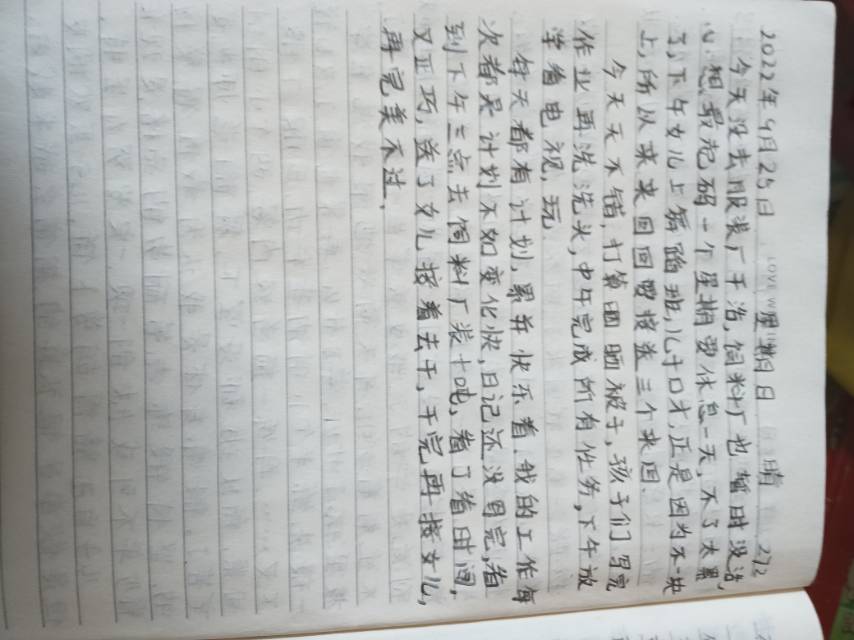 2022年9月25日 星期日 晴 272
今天没去服装厂干活,饲料厂也暂时没活,
心想最起码一个星期要休息一天,不了太累
了,下午女儿上舞蹈班,儿子口才,正是因为不一块
上,所以来来回回要接送三个来回.
今天天不错,打算困晒被子,孩子们写完
作业再洗洗头,中午完成所有任务,下午放
学看电视,玩
每天都有计划,累并快乐着,我的工作每
次都是计划不如变化快,日记还没写完,省
到下午三点去饲料厂装十吨,看了看时间,
又正巧,送了女儿接着去干,干完再接女儿,
再完美不过.